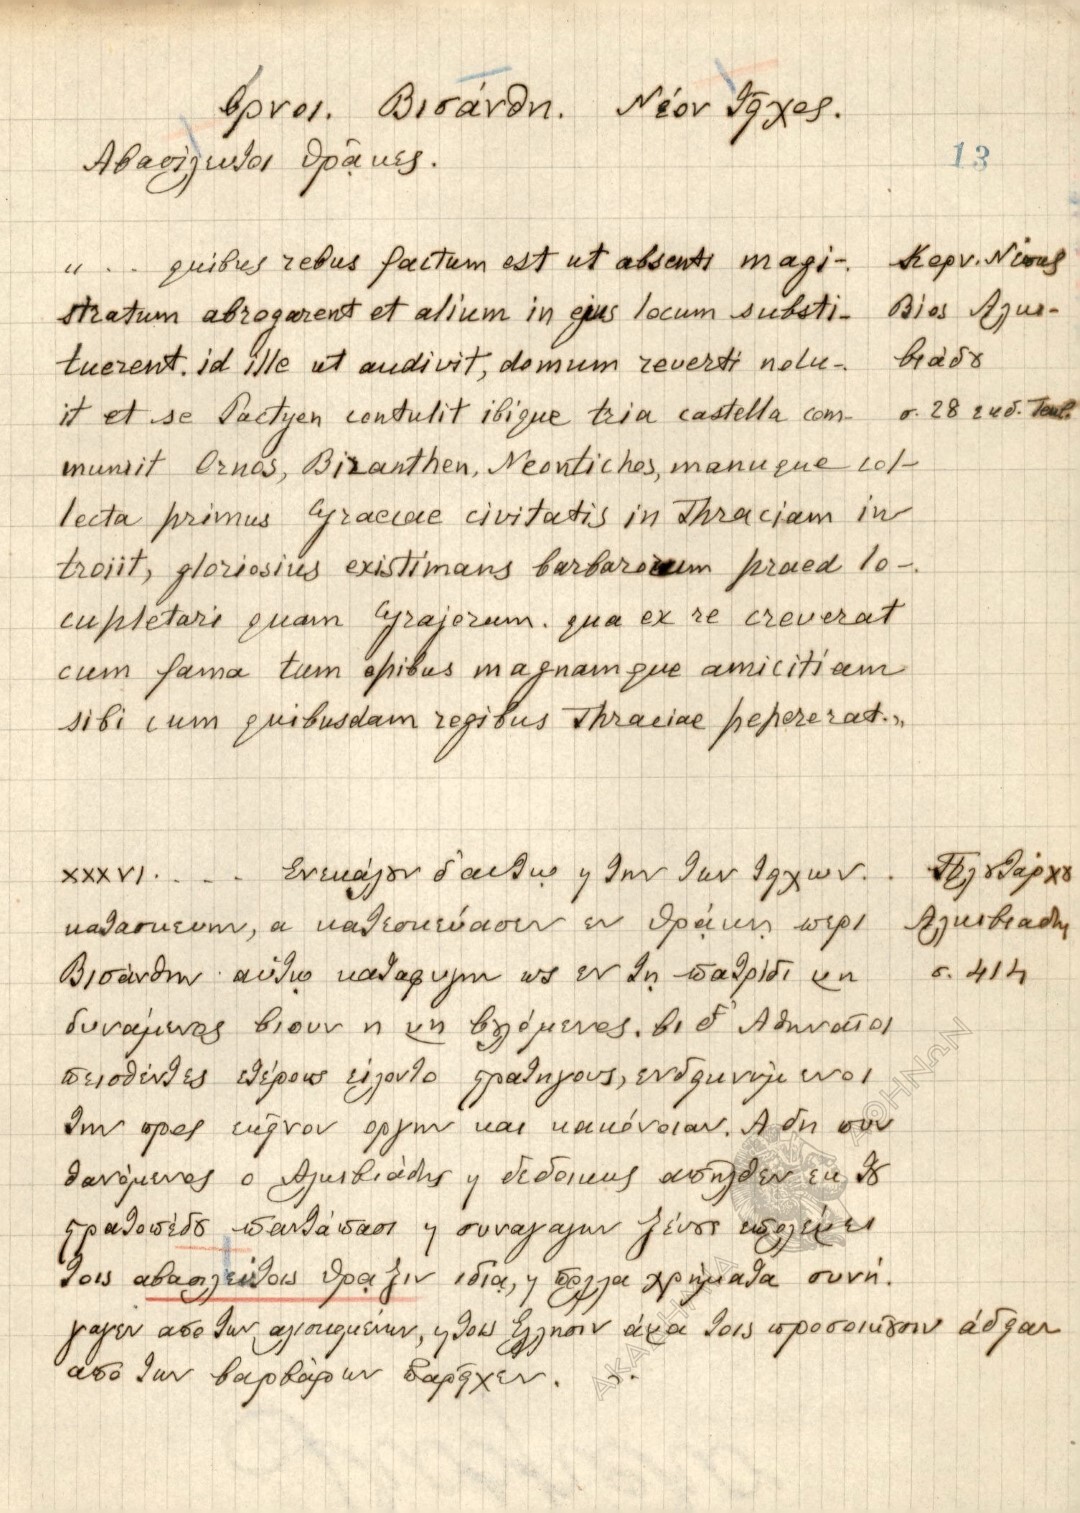 Ορνοι. Βισάνθη. Νέον τεῖχος.
Αβασίλευτοι Θρᾷκες.
13
„ . . quibus rebus factum est ut absenti magi-
stratum abrogarent et alium in ejus locum substi-
tuerent. id ille ut audivit, domum reverti nolu-
it et se Pactyen contulit ibique tria castella com-
muniit Ornos, Bizanthen, Neontichos, manuque col-
lecta primus Graeciae civitatis in Thraciam in
troiit, gloriosius existimans barbarorum praed lo-
cupletari quam Grajorum. qua ex re creverat
cum fama tum opibus magnamque amicitiam
sibi cum quibusdam regibus Thraciae pepererat.„
Κορν. Νέπως
Βίος Αλκι-
βιάδου
σ. 28 εκδ. Teub.
XXXVI. . . . Ενεκάλουν δ'αυτῳ ϗ την των τειχων . .
κατασκευην, α κατεσκεύασεν εν Θρᾴκῃ περι
Βισάνθην αὑτῳ καταφυγην ως εν τῃ πατρίδι μη
δυνάμενος βιουν η μη βουλόμενος. οι δ' Αθηναῖοι
πεισθέντες ετέρους είλοντο στρατηγους, ενδεικνύμενοι
την προς εκεῖνον οργην και κακόνοιαν. Α δη πυν
θανόμενος ο Αλκιβιάδης ϗ δεδοικως απηλθεν εκ του
στρατοπέδου παντάπασι ϗ συναγαγων ξένους επολέμει
τοις αβασιλεύτοις Θρᾳξιν ιδίᾳ, ϗ πολλα χρήματα συνή.
γαγεν απο των αλισκομένων, ϗ τοις Έλλησιν άμα τοις προσοικοῦσιν άδειαν
απο των βαρβάρων παρεῖχεν. „.
Πλουτάρχου
Αλκιβιαδης
σ. 414
ΑΚΑΔΗΜΙΑ ΑΘΗΝΩΝ